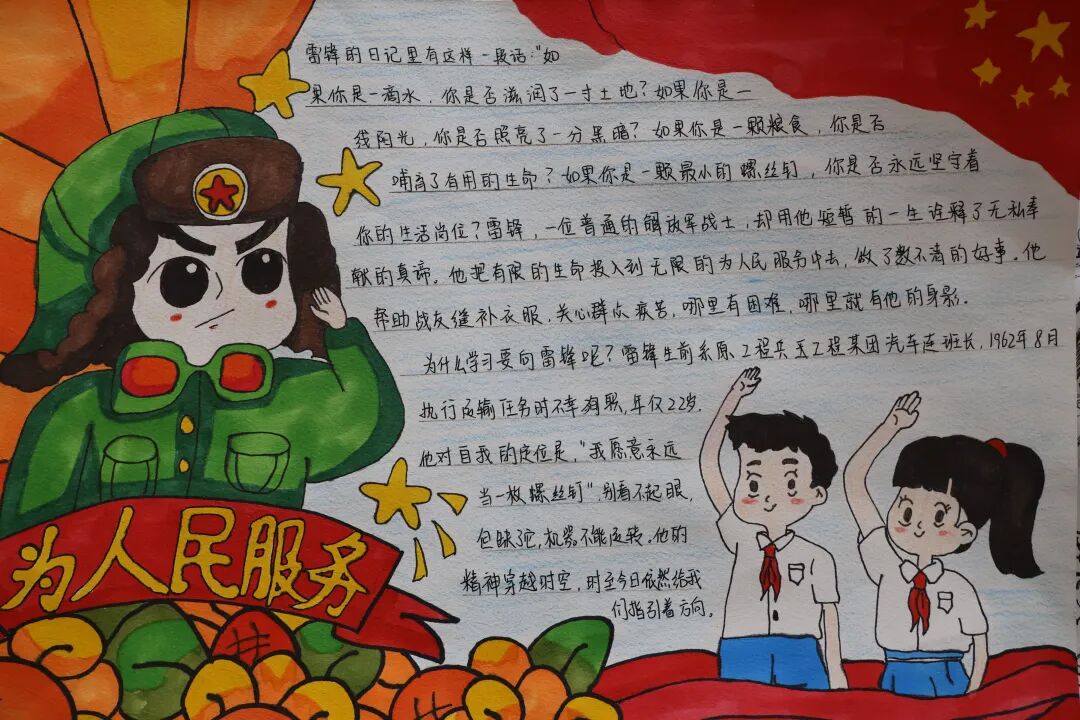 雷锋的日记里有这样一段话:"如
果你是一滴水,你是否滋润了一寸土地?如果你是一
线阳光,你是否照亮了一分黑暗?如果你是一颗粮食,你是否
哺育了有用的生命?如果你是一颗最小的螺丝钉,你是否永远坚守着
你的生活岗位?雷锋,一位普通的解放军战士,却用他短暂的一生诠释了无私奉
献的真谛。他把有限的生命投入到无限的为人民服务中去,做了数不清的好事。他
帮助战友缝补衣服,关心群众疾苦,哪里有困难,哪里就有他的身影.
为什么学习要向雷锋呢?雷锋生前系原工程兵工程某团汽车连班长,1962年8月
执行运输任务时不幸殉职,年仅22岁.
他对自我的定位是,"我愿意永远
当一枚螺丝钉",别看不起眼,
但缺它,机器不能运转.他的
精神穿越时空,时至今日依然给我
们指引着方向。
为人民服务